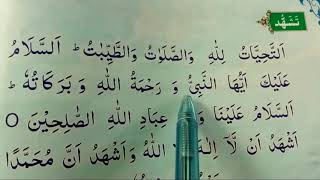 تشهد
اَلتَّحِيَّاتُ لِلّٰهِ وَالصَّلَوٰتُ وَالطَّيِّبٰتُ ؕ اَلسَّلَامُ
عَلَيْكَ اَيُّهَا النَّبِيُّ وَ رَحْمَةُ اللّٰهِ وَ بَرَكَاتُهٗ ؕ
اَلسَّلَامُ عَلَيْنَا وَ عِبَادِ اللّٰهِ الصّٰلِحِيْنَ ○
اَشْهَدُ اَنْ لَّا اِلٰهَ اللّٰهُ وَاَشْهَدُ اَنَّ مُحَمَّدًا